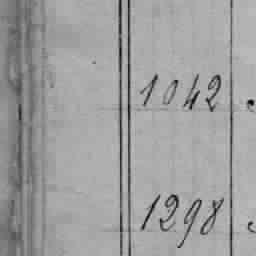 1042
1298